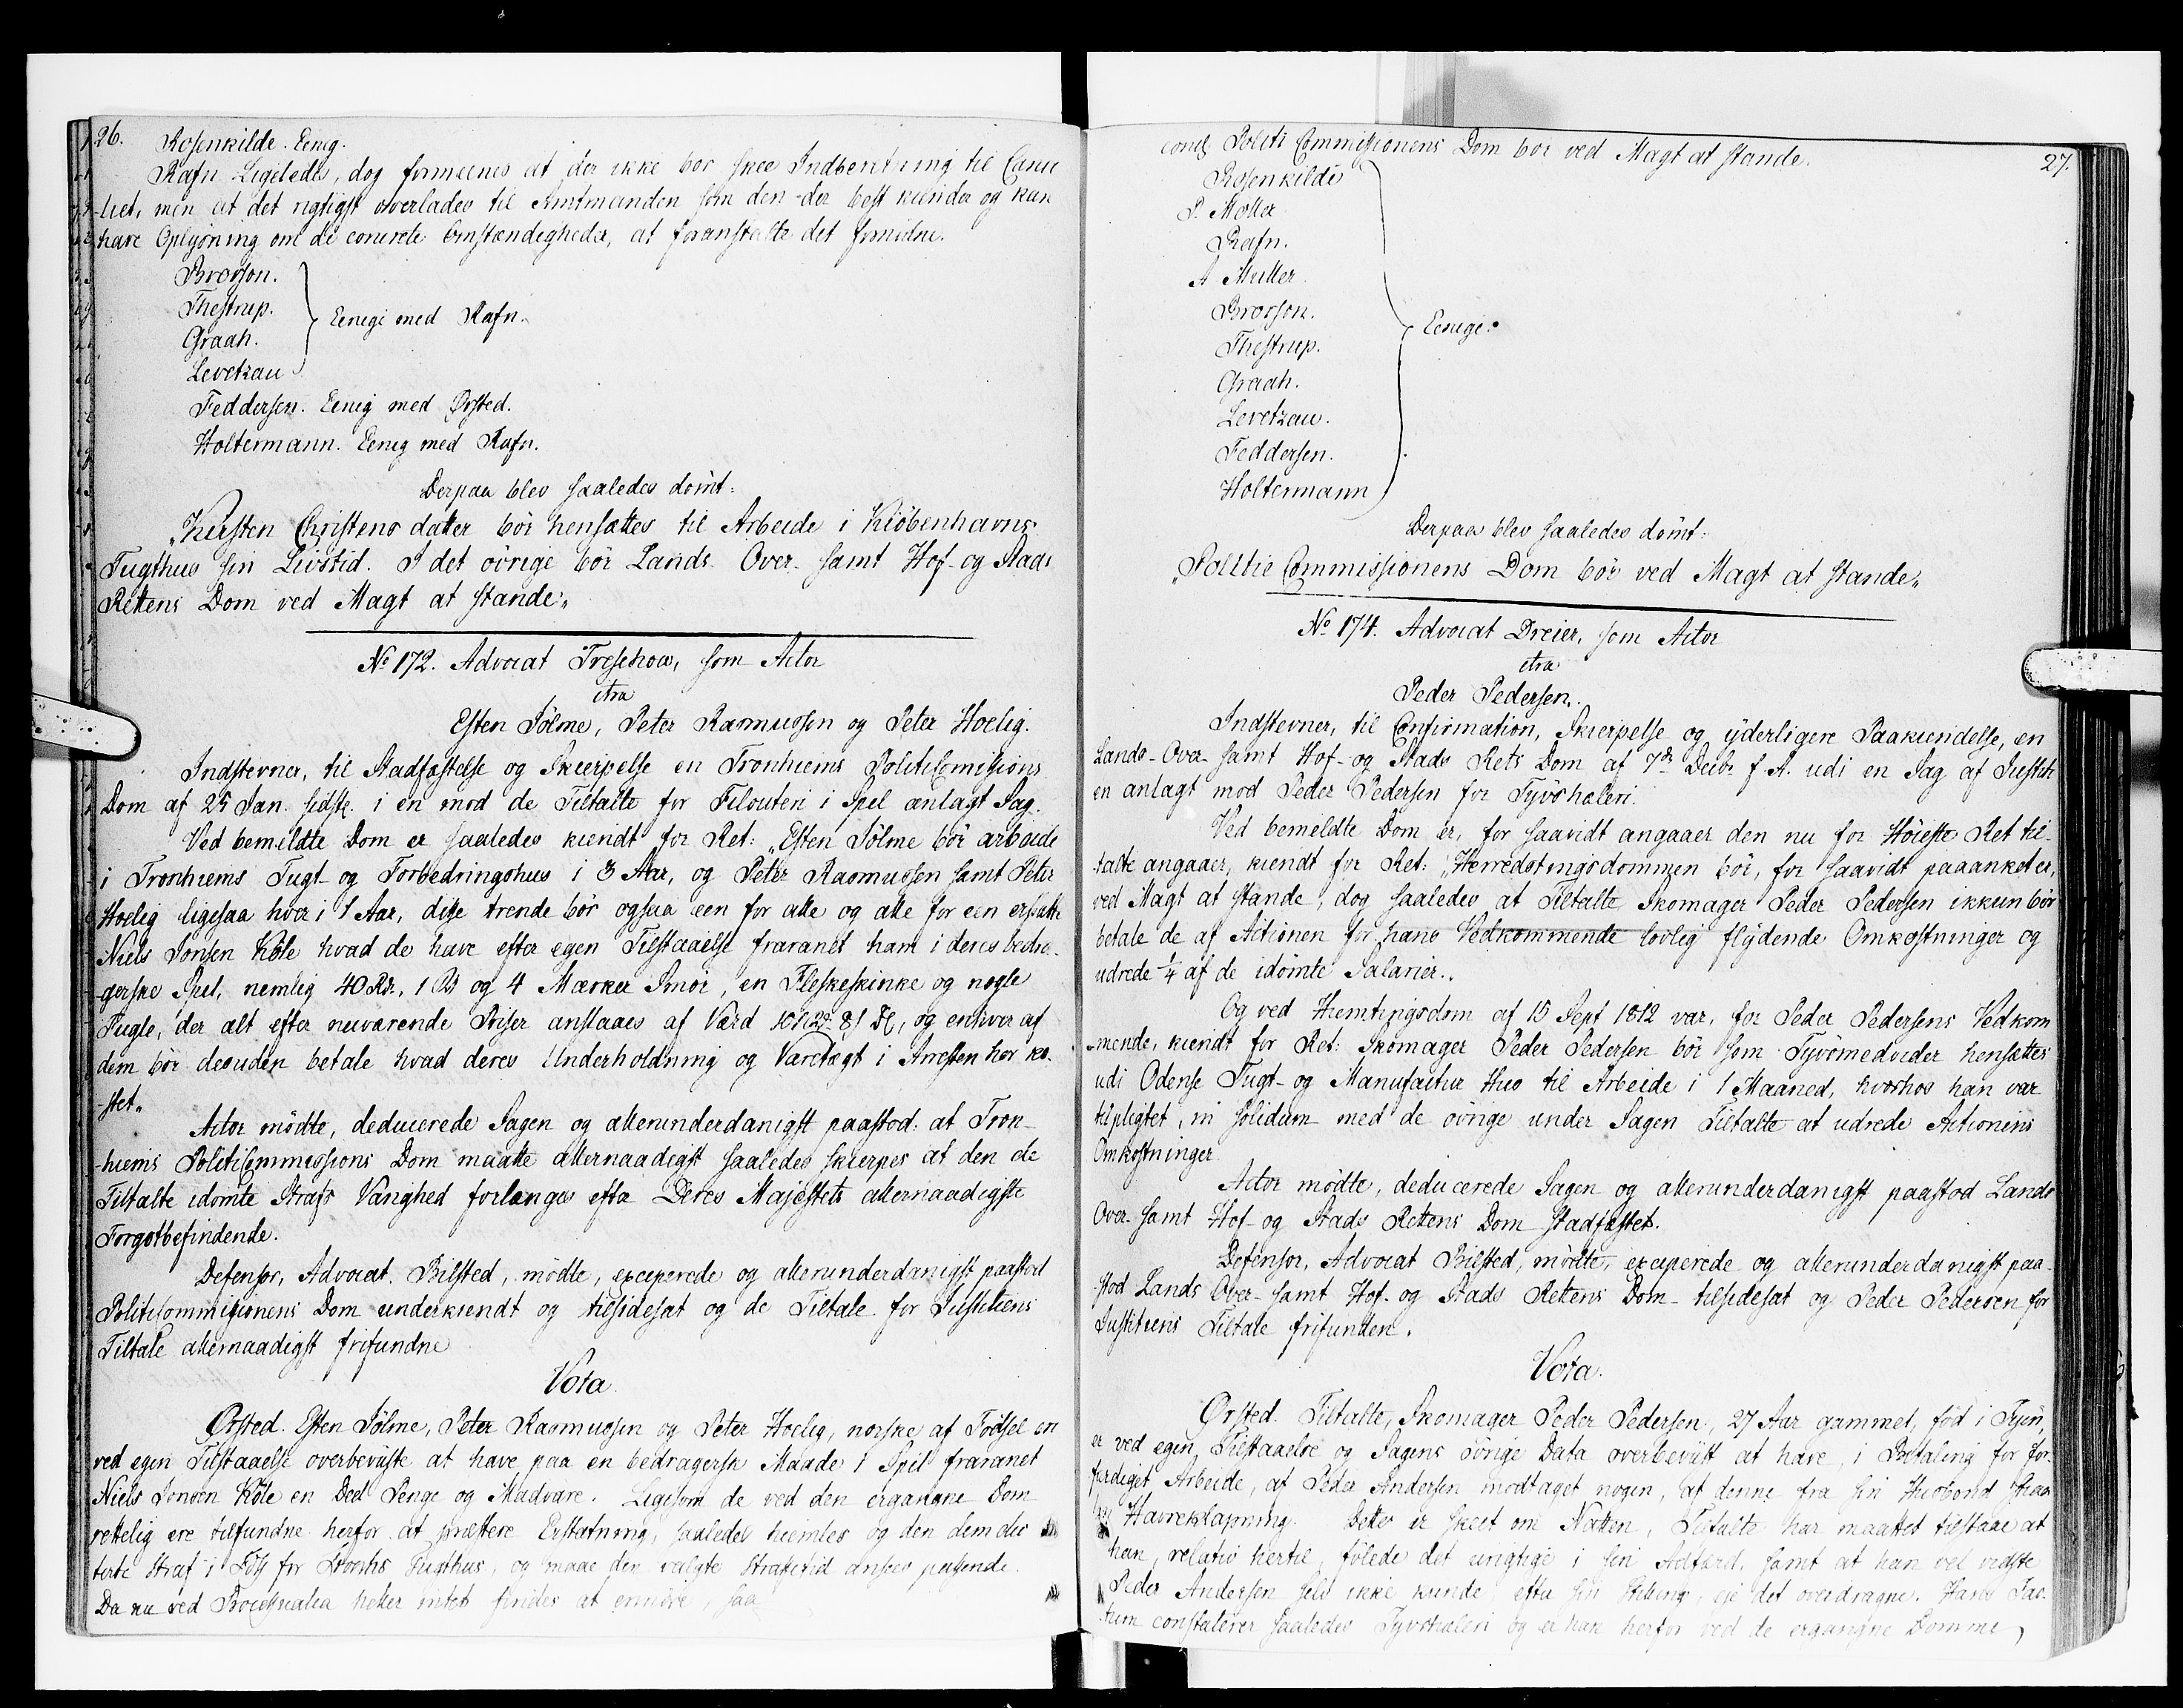 26.
Rosenkilde. Eenig.
Rafn. Ligeledes, dog formeenes at der ikke bör skee Indberetning til Canc
-liet, men at det rigtigst overlades til Amtmanden som den der best kiender og kan
have Oplysning om de concrete Omstændigheder, at foranstalte det fornödne.
Brorson.
Thestrup.
Graah.
Levetzau
Eenige med Rafn.
Feddersen. Eenig med Ørsted.
Holtermann. Eenig med Rafn.
Derpaa blev saaledes dömt:
„Kirsten Christensdatter bör hensættes til Arbeide i Kiöbenhavns
Tugthus sin Livstid. I det övrige bör Lands- Over- samt Hof- og Stads
Rettens Dom ved Magt at stande„
No 172. Advocat Treschow, som Actor
ctra
Esten Sölme, Peter Rasmussen og Peter Hoelig.
Indstevner, til Stadfæstelse og Skierpelse en Tronhiems Politicomissions
Dom af 25 Jan. sidstl. i en mod de Tiltalte for Filouteri i Spil anlagt Sag.
Ved bemeldte Dom er saaledes kiendt for Ret: „Esten Sölme bör arbeide
i Tronhiems Tugt- og Forbedringshus i 3 Aar, og Peter Rasmussen samt Peter
Hoelig ligesaa hver i 1 Aar, disse trende bör ogsaa een for alle og alle for een erstatte
Niels Jonsen Köle hvad de have efter egen Tilstaaelse fravranet ham i deres bedra-
gerske Spil, nemlig 40 Rd., 1 Bd og 4 Mærker Smör, en Fleskeskinke og nogle
Fugle, der alt efter nuværende Priser anslaaes af Værd og enhver af
dem bör desuden betale hvad deres Underholdning og Varetægt i Arresten har ko-
-stet„
Actor mödte, deducerede Sagen og allerunderdanigst paastod: at Tron-
-hiems Politicommissions Dom maatte allernaadigst saaledes skierpes at den de
Tiltalte idömte Strafs Varighed forlænges efter Deres Majestets allernaadigste
Forgotbefindende.
Defensor, Advocat Bilsted, mödte, exciperede og allerunderdanigst paastod
Politicommissionens Dom underkiendt og tilsidesat og de Tiltalte for Justitiens
Tiltale allernaadigst frifundne
Vota.
Ørsted. Esten Sölme, Peter Rasmussen og Peter Hoelig, norske af Födsel ere
ved egen Tilstaaelse overbeviiste at have paa en bedragersk Maade i Spil fravranet
Niels Jonsen Köle en Deel Penge og Madvare. Ligesom de ved den ergangne Dom
rettelig ere tilfundne herfor at præstere Erstatning, saaledes hiemles og den dem dic
terte Straf i for Tugthus, og maae den valgte Strafetid ansees passende.
Da nu ved Processualia heller intet findes at erindre, saa
27.
conf. Politi Commissionens Dom bör ved Magt at stande.
Rosenkilde
P. Møller
Rafn.
A Müller
Brorson.
Thestrup.
Graah.
Levetzau.
Feddersen.
Holtermann
Eenige.
Derpaa blev saaledes dömt:
„Politie Commissionens Dom bör ved Magt at stande„
No 174. Advocat Dreier, som Actor
ctra
Peder Pedersen.
Indstevner, til Confirmation, Skierpelse og yderligere Paakiendelse, en
Lands- Over- samt Hof- og Stads Rets Dom af 7de Decbr f. A. udi en Sag af Justiti
en anlagt mod Peder Pedersen for Tyvshæleri.
Ved bemeldte Dom er, for saavidt angaaer den nu for Höieste Ret til-
talte angaaer, kiendt for Ret: „Herredstingsdommen bör, for saavidt paaanket er,
ved Magt at stande, dog saaledes at Tiltalte Skomager Peder Pedersen ikkun bör
betale de af Actionen for hans Vedkommende lovlig flydende Omkostninger og
udrede 1/4 af de idömte Salarier.„
Og ved Hiemtingsdom af 15 Sept 1812 var, for Peder Pedersens Vedkom
mende, kiendt for Ret: Skomager Peder Pedersen bör som Tyvsmedvider hensættes
udi Odense Tugt- og Manufactur Huus til Arbeide i 1 Maaned, hvorhos han var
tilpligtet, in solidum med de övrige under Sagen Tiltalte at udrede Actionens
Omkostninger
Actor mödte, deducerede Sagen og allerunderdanigst paastod Lands
Over- samt Hof- og Stads Rettens Dom stadfæstet.
Defensor, Advocat Bilsted, mödte, exciperede og allerunderdanigst paa-
stod Lands Over- samt Hof- og Stads Rettens Dom tilsidesat og Peder Pedersen for
Justitiens Tiltale frifunden.
Vota.
Ørsted. Tiltalte, Skomager Peder Pedersen, 27 Aar gammel, föd i Fyen,
er ved egen Tilstaaelse og Sagens övrige Data overbeviist at have, i Betaling for for-
færdiget Arbeide, af Peder Andersen modtaget nogen, af denne fra sin Huusbond
Havreklapning. Dette er skeet om Natten, Tiltalte har maattet tilstaae at
han, relativ hertil, fölede det urigtige i sin Adfærd, samt at han vel vidste
Peder Andersen selv ikke kunde, efter sin Stilling, eie det overdragne. Hans Fac-
tum constaterer saaledes Tyvshæleri og er han herfor ved de ergangne Domme,